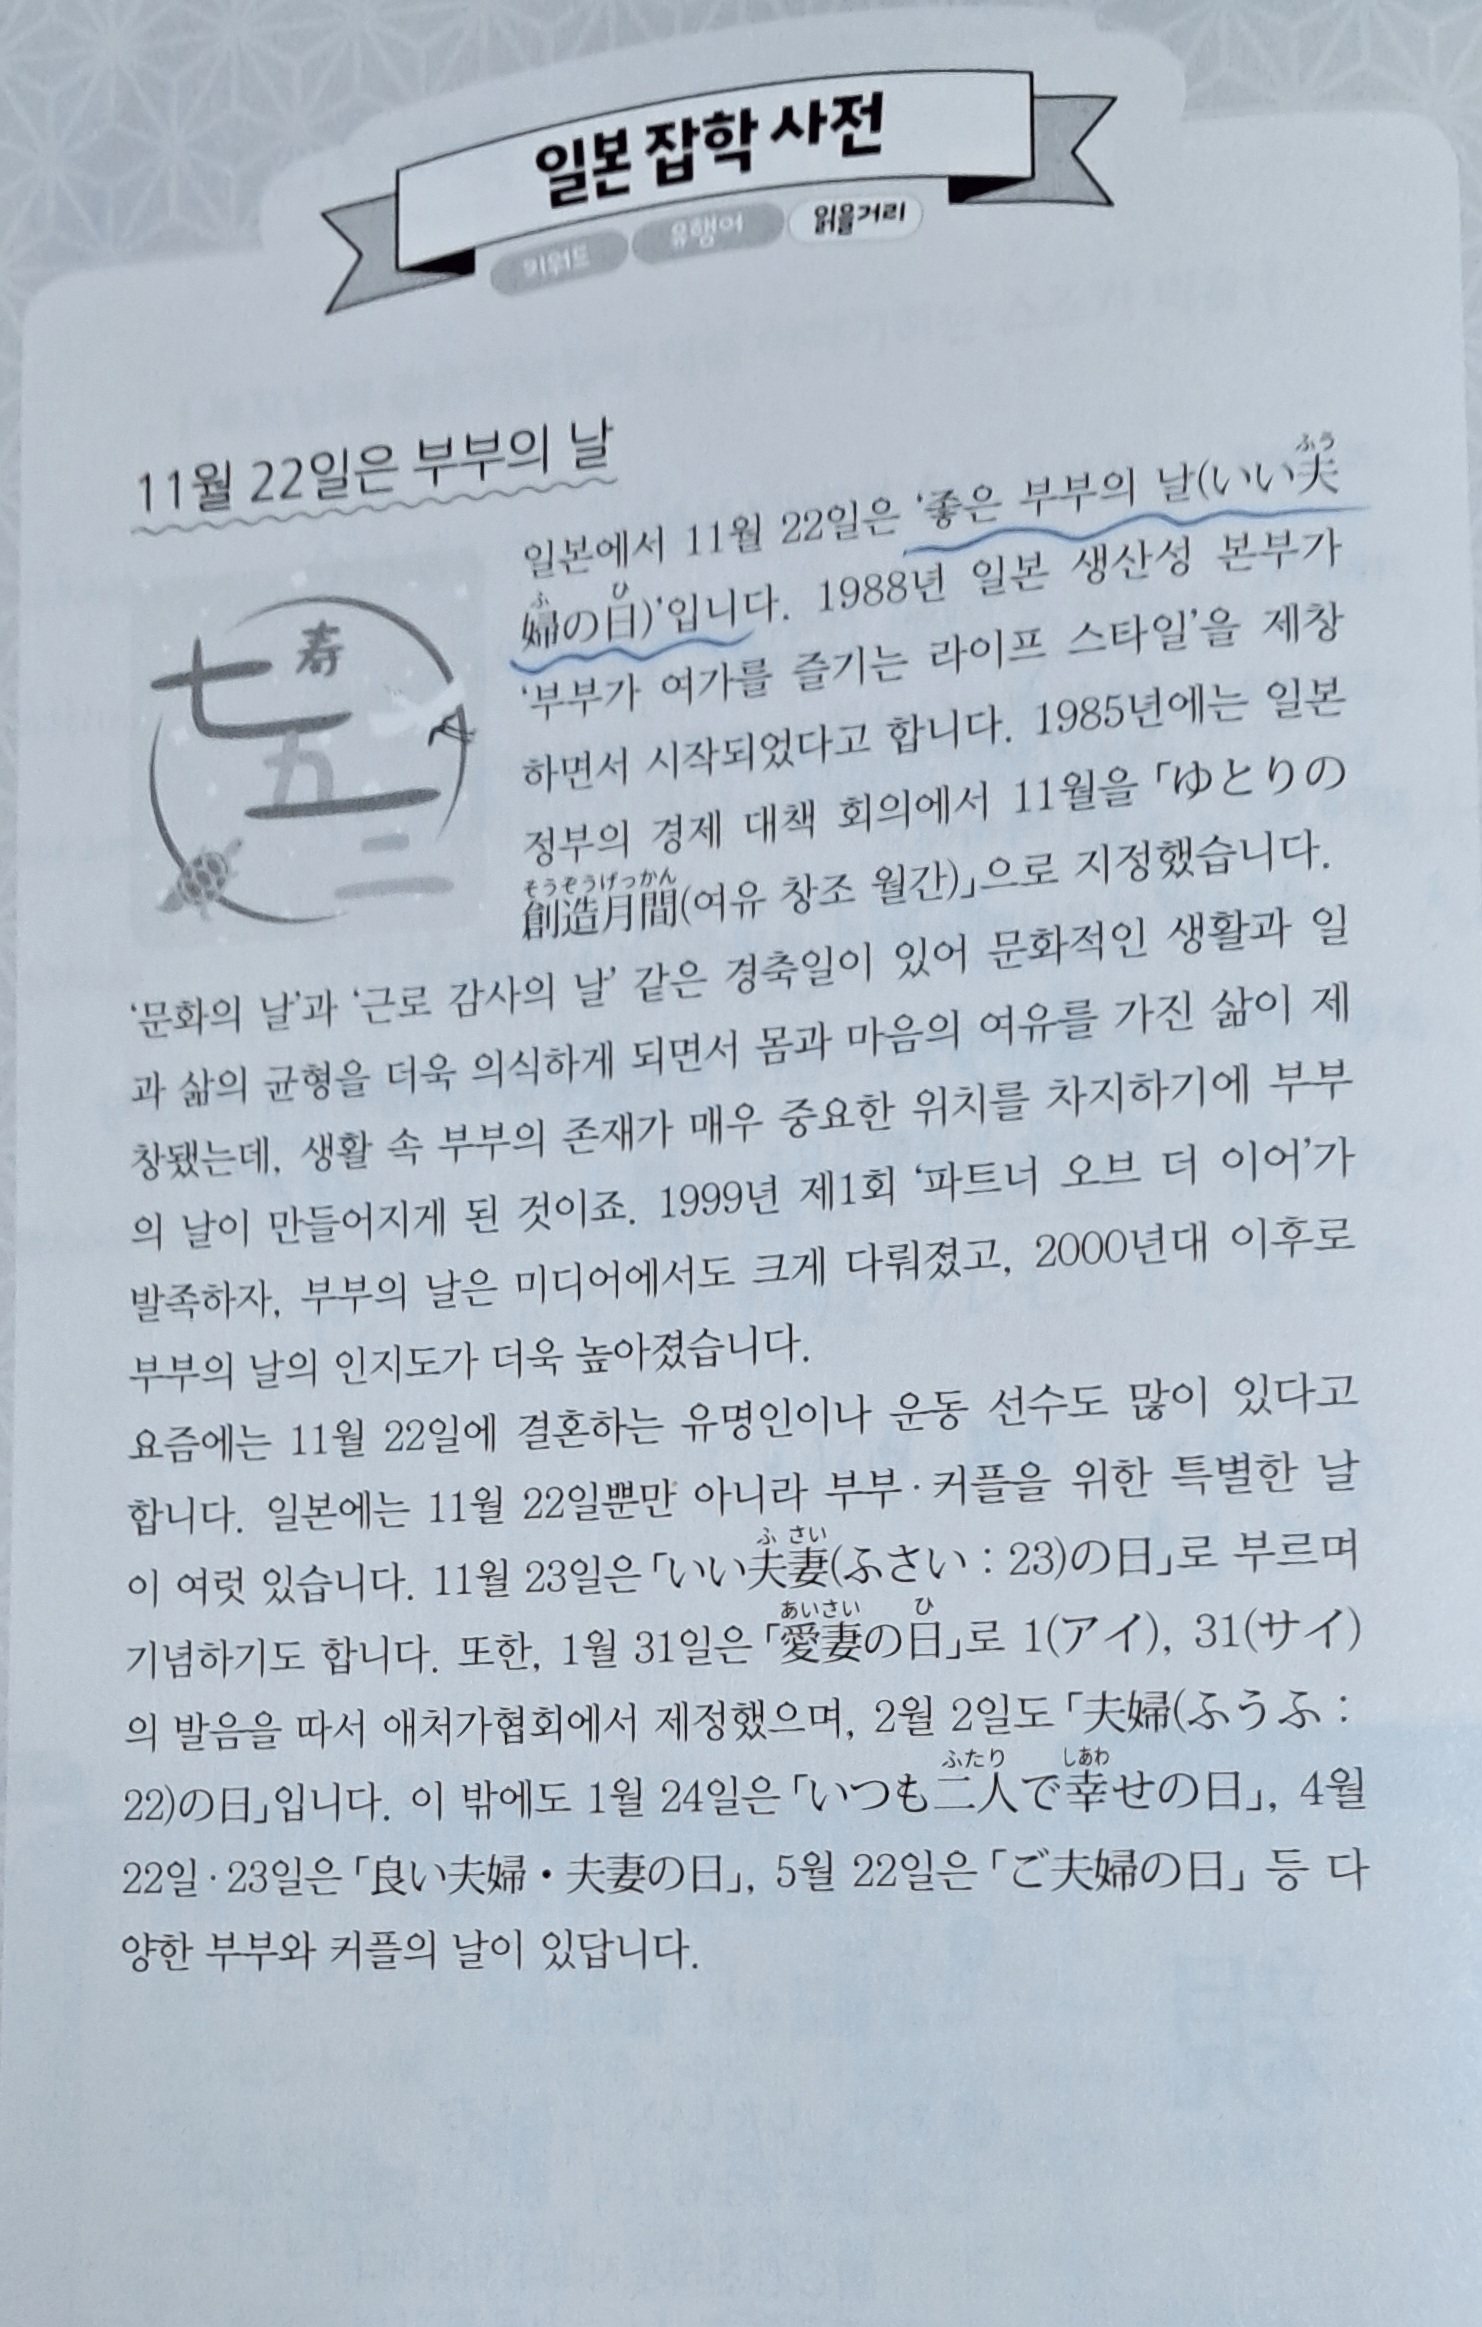 일본 잡학 사전
키워드 유행어 읽을거리
11월 22일은 부부의 날
七五三
寿
일본에서 11월 22일은 ‘좋은 부부의 날(いい夫
ふう
婦の日)’입니다. 1988년 일본 생산성 본부가
ふ ひ
‘부부가 여가를 즐기는 라이프 스타일’을 제창
하면서 시작되었다고 합니다. 1985년에는 일본
정부의 경제 대책 회의에서 11월을 「ゆとりの
そうぞうげっかん
創造月間(여유 창조 월간)」으로 지정했습니다.
‘문화의 날’과 ‘근로 감사의 날’ 같은 경축일이 있어 문화적인 생활과 일
과 삶의 균형을 더욱 의식하게 되면서 몸과 마음의 여유를 가진 삶이 제
창됐는데, 생활 속 부부의 존재가 매우 중요한 위치를 차지하기에 부부
의 날이 만들어지게 된 것이죠. 1999년 제1회 ‘파트너 오브 더 이어’가
발족하자, 부부의 날은 미디어에서도 크게 다뤄졌고, 2000년대 이후로
부부의 날의 인지도가 더욱 높아졌습니다.
요즘에는 11월 22일에 결혼하는 유명인이나 운동 선수도 많이 있다고
합니다. 일본에는 11월 22일뿐만 아니라 부부·커플을 위한 특별한 날
ふ さい
이 여럿 있습니다. 11월 23일은 「いい夫妻(ふさい : 23)の日」로 부르며
あいさい ひ
기념하기도 합니다. 또한, 1월 31일은 「愛妻の日」로 1(アイ), 31(サイ)
의 발음을 따서 애처가협회에서 제정했으며, 2월 2일도 「夫婦(ふうふ :
ふたり しあわ
22)の日」입니다. 이 밖에도 1월 24일은 「いつも二人で幸せの日」, 4월
22일·23일은 「良い夫婦・夫妻の日」, 5월 22일은 「ご夫婦の日」 등 다
양한 부부와 커플의 날이 있답니다.